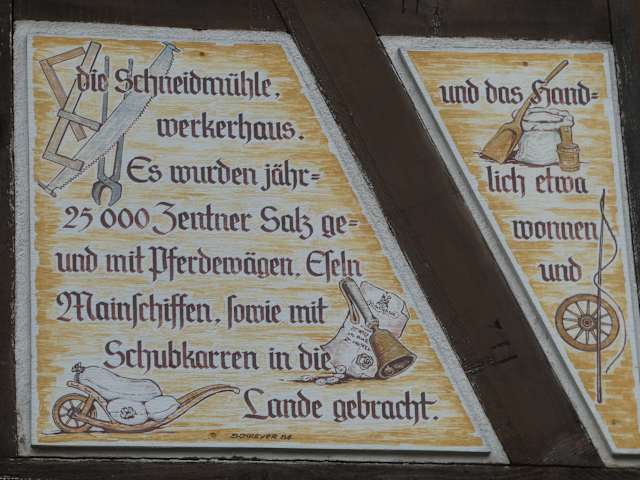 die Schneidmühle, und das Hand=
werkerhaus.
Es wurden jähr= lich etwa
25 000 Zentner Salz ge= wonnen
und mit Pferdewägen, Eseln und
Mainschiffen, sowie mit
Schubkarren in die
Lande gebracht.
SCHREYER